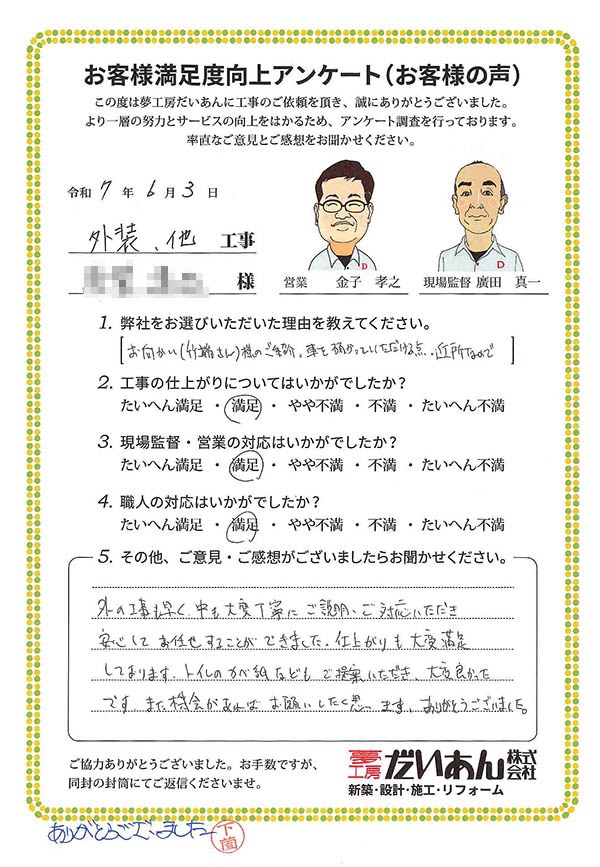 お客様満足度向上アンケート(お客様の声)
この度は夢工房だいあんに工事のご依頼を頂き、誠にありがとうございました。
より一層の努力とサービスの向上をはかるため、アンケート調査を行っております。
率直なご意見とご感想をお聞かせください。
令和 7 年 6 月 3 日
外装、他 工事
様
D
営業 金子 孝之
D
現場監督 廣田 真一
1. 弊社をお選びいただいた理由を教えてください。
お向かい(竹嶋さん)様のご紹介。車を預かっていただける点。近所なので
2. 工事の仕上がりについてはいかがでしたか?
たいへん満足 ・ 満足 ・ やや不満 ・ 不満 ・ たいへん不満
3. 現場監督・営業の対応はいかがでしたか?
たいへん満足 ・ 満足 ・ やや不満 ・ 不満 ・ たいへん不満
4. 職人の対応はいかがでしたか?
たいへん満足 ・ 満足 ・ やや不満 ・ 不満 ・ たいへん不満
5. その他、ご意見・ご感想がございましたらお聞かせください。
外の工事も早く、中も大変丁寧にご説明、ご対応いただき
安心してお任せすることができました。仕上がりも大変満足
しております。トイレのかべ紙などもご提案いただき、大変良かった
です。また機会があればお願いしたく思います。ありがとうございました。
ご協力ありがとうございました。お手数ですが、
同封の封筒にてご返信くださいませ。
夢工房 だいあん 株式会社
新築・設計・施工・リフォーム
ありがとうございました 下薗